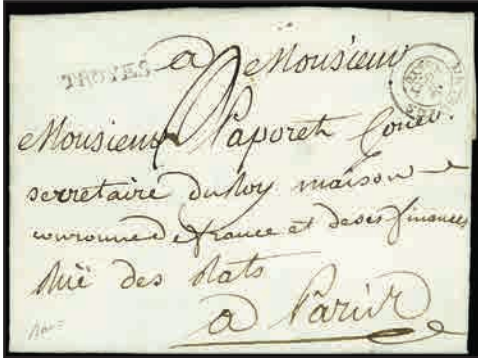 a Monsieur
Monsieur Laporeth
secretaire du Roy maison
couronne de france et de ses finances
Ruë des Rats
a Paris